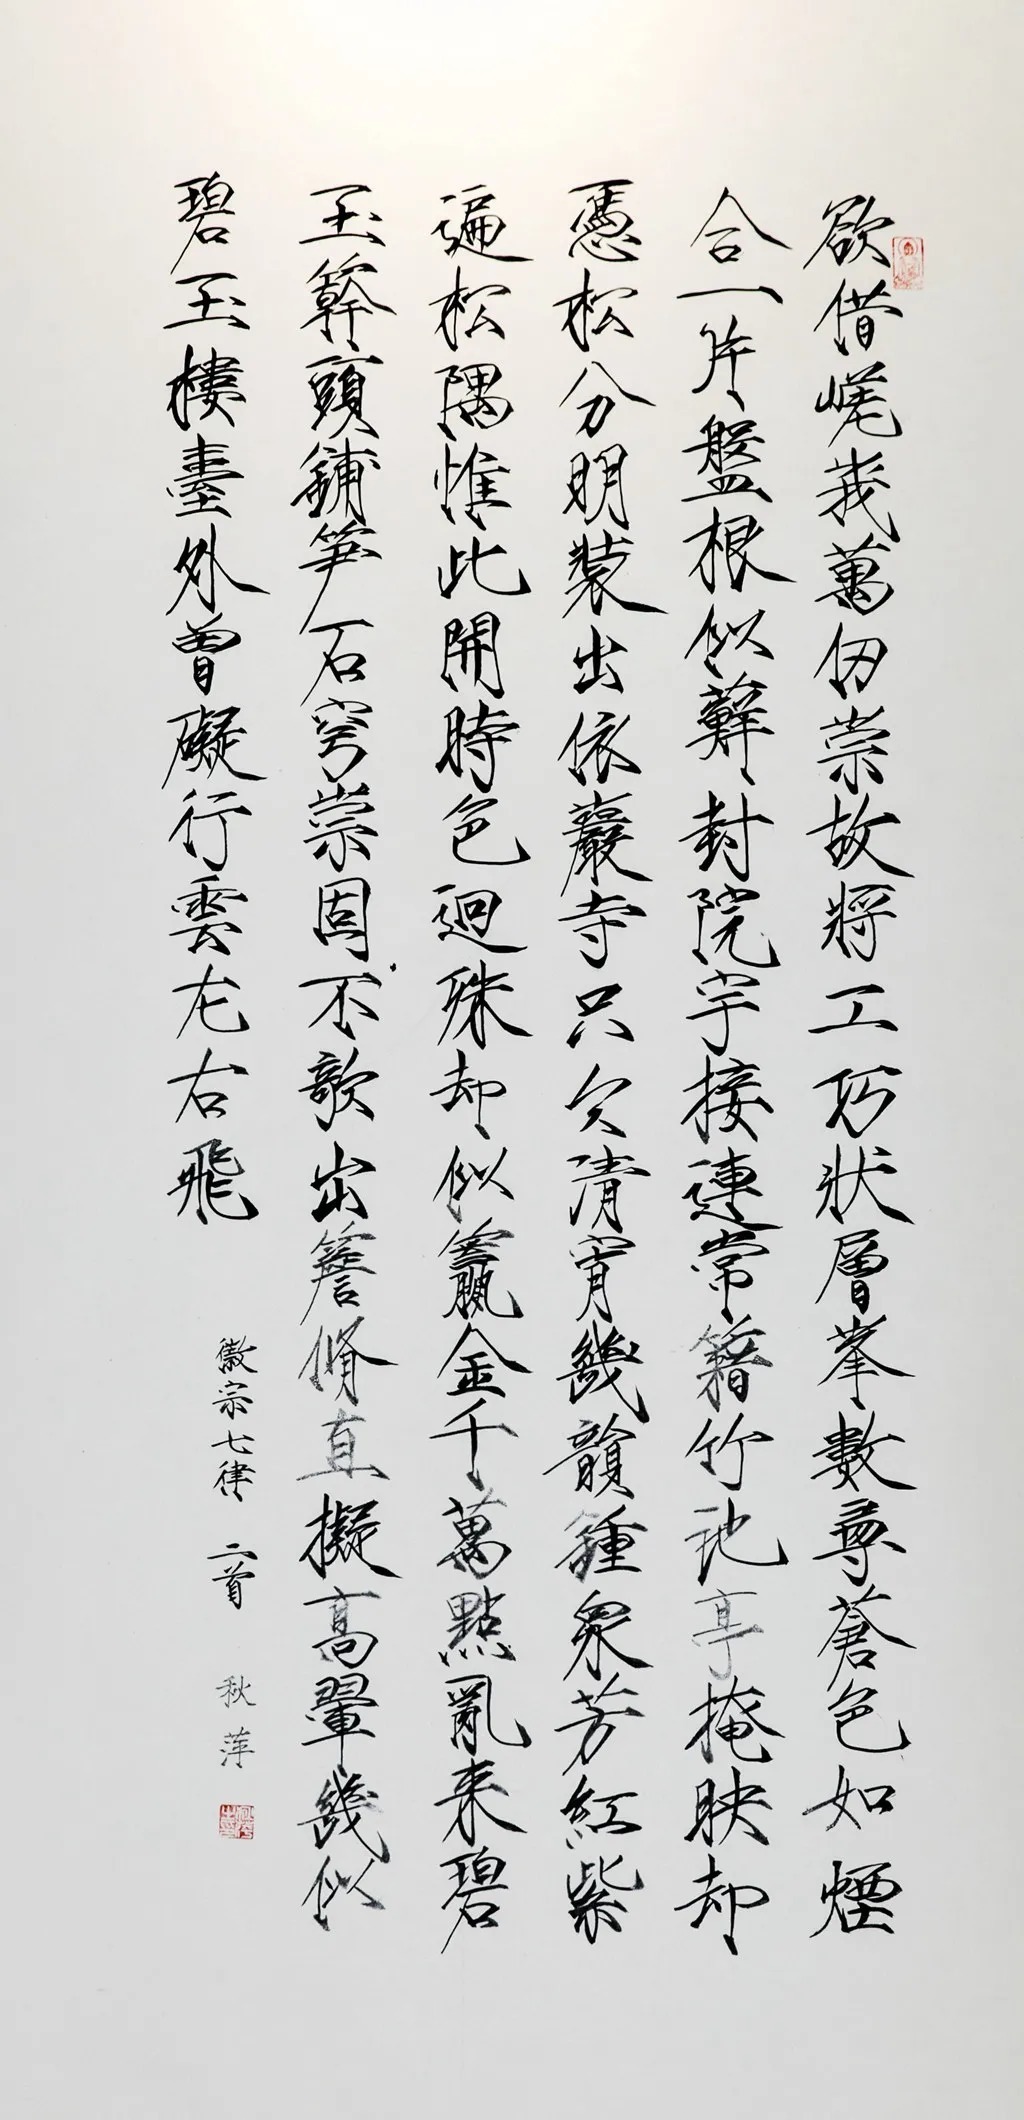 欲借嵯峩萬仞崇故將工巧狀層峯數尋蒼色如煙
合一片盤根似蘚封院宇接連常籍竹池亭掩映却
憑松分明裝出依巖寺只欠清宵幾韻鍾衆芳紅紫
遍松隅惟此開時色迥殊却似籯金千萬點亂来碧
玉簳頭鋪笋石穹崇固不歌出簷脩直擬高翬幾似
碧玉樓臺外曾礙行雲左右飛
徽宗七律 二首 秋萍